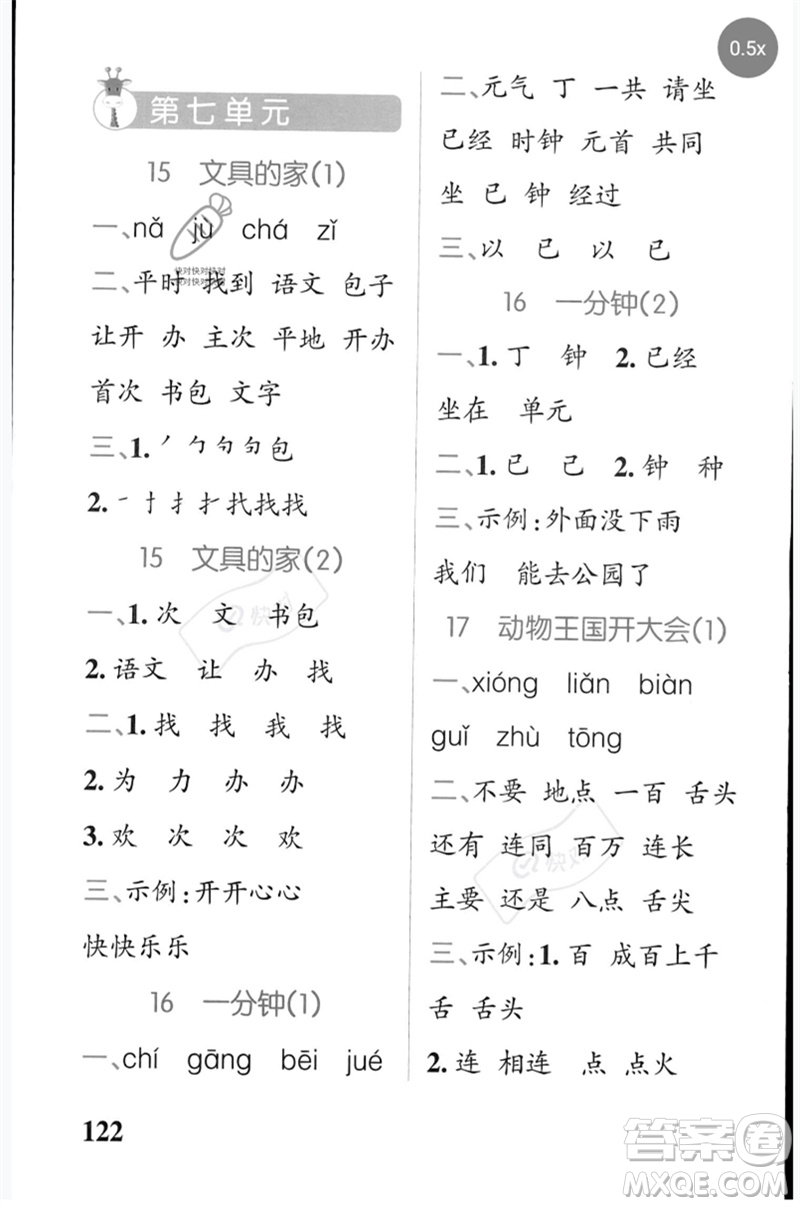 0.5x
第七单元
15 文具的家(1)
一、nǎ jù chá zǐ
快对快对快对
快对快对快对
二、平时 找到 语文 包子
让开 办 主次 平地 开办
首次 书包 文字
三、1.丿 勹 勺 句 包
2.一 十 扌 扌 找 找 找
15 文具的家(2)
一、1.次 文 书包
2.语文 让 办 找
二、1.找 找 我 找
2.为 力 办 办
3.欢 次 次 欢
三、示例:开开心心
快快乐乐
16 一分钟(1)
一、chí gāng bēi jué
122
二、元气 丁 一共 请坐
已经 时钟 元首 共同
坐 已 钟 经过
三、以 已 以 已
16 一分钟(2)
一、1.丁 钟 2.已经
坐在 单元
二、1.已 己 2.钟 种
三、示例:外面没下雨
我们 能去公园了
17 动物王国开大会(1)
一、xióng liǎn biàn
guǐ zhù tōng
二、不要 地点 一百 舌头
还有 连同 百万 连长
主要 还是 八点 舌尖
三、示例:1.百 成百上千
舌 舌头
2.连 相连 点 点火
快对
快对
答案圈
MXQE.COM